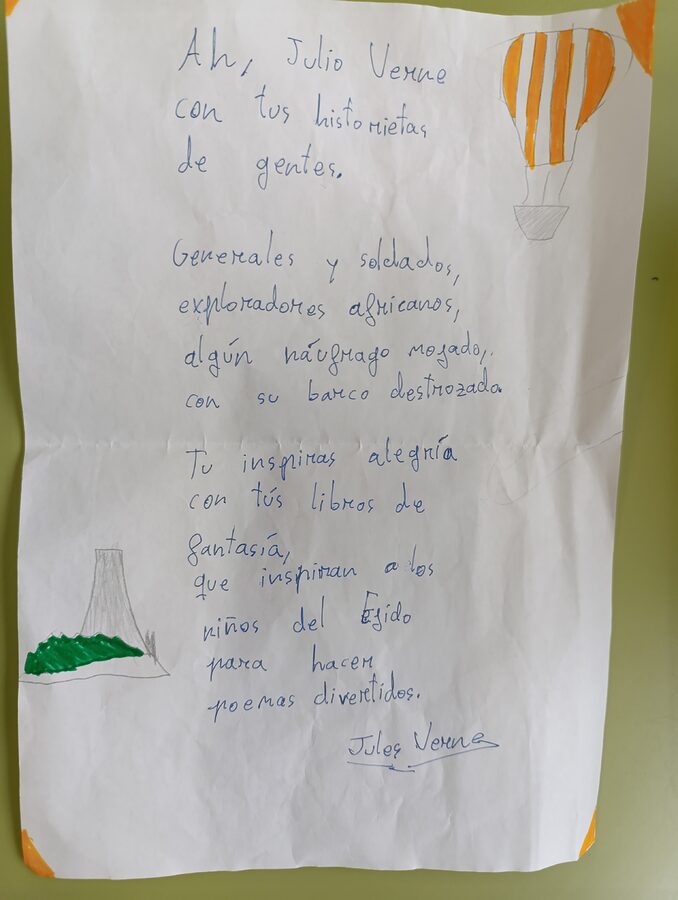 Ah, Julio Verne
con tus historietas
de gentes.
Generales y soldados,
exploradores africanos,
algún náufrago mojado,
con su barco destrozado
Tu inspiras alegría
con tús libros de
fantasía,
que inspiran a los
niños del Ejido
para hacer
poemas divertidos.
Jules Verne